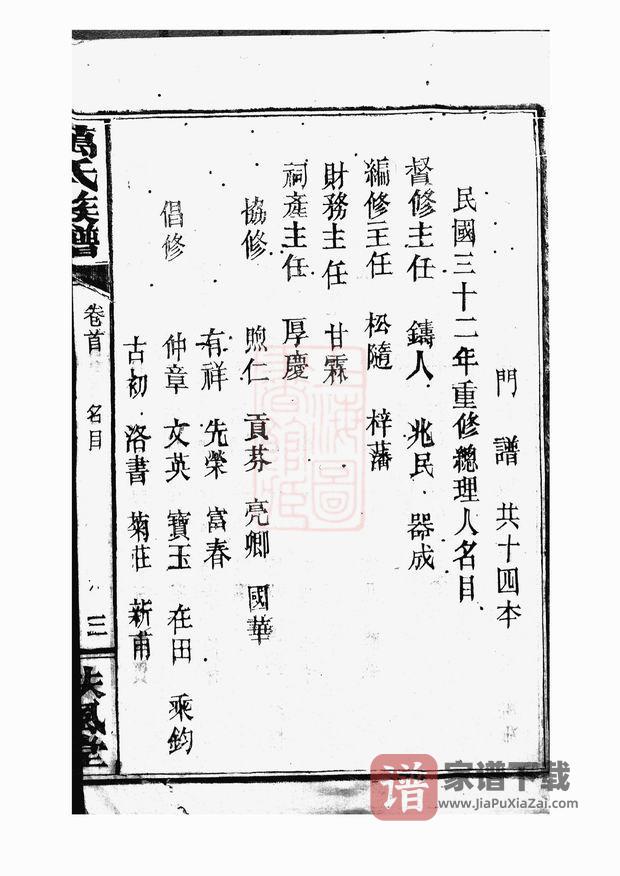 門譜 共十四本
民國三十二年重修總理人名目
督修主任 鑄人 兆民 器成
編修主任 松隨 梓藩
財務主任 甘霖
祠產主任 厚慶
協修 煦仁 貢芬 亮卿 國華
有祥 先榮 富春
倡修 仲章 文英 寶玉 在田 乘鈞
古初 洛書 菊莊 新甫
萬氏族譜
卷首 名目
三
扶風堂
上海圖書館藏
谱
家谱下载
www.JiaPuXiaZai.com